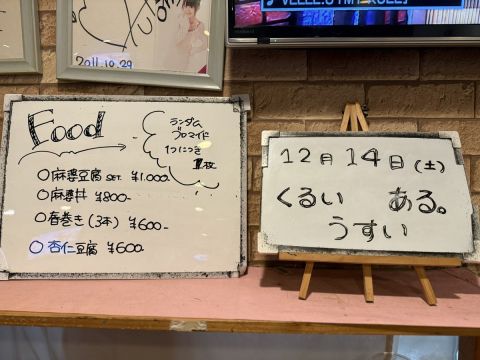 2011.10.29
Food
ランダム
ブロマイド
1つにつき
1枚
○麻婆豆腐 SET. ¥1.000-
○麻婆丼 ¥800-
○春巻き(3本) ¥600-
○杏仁豆腐 ¥600-
12月14日(土)
くるい ある。
うすい